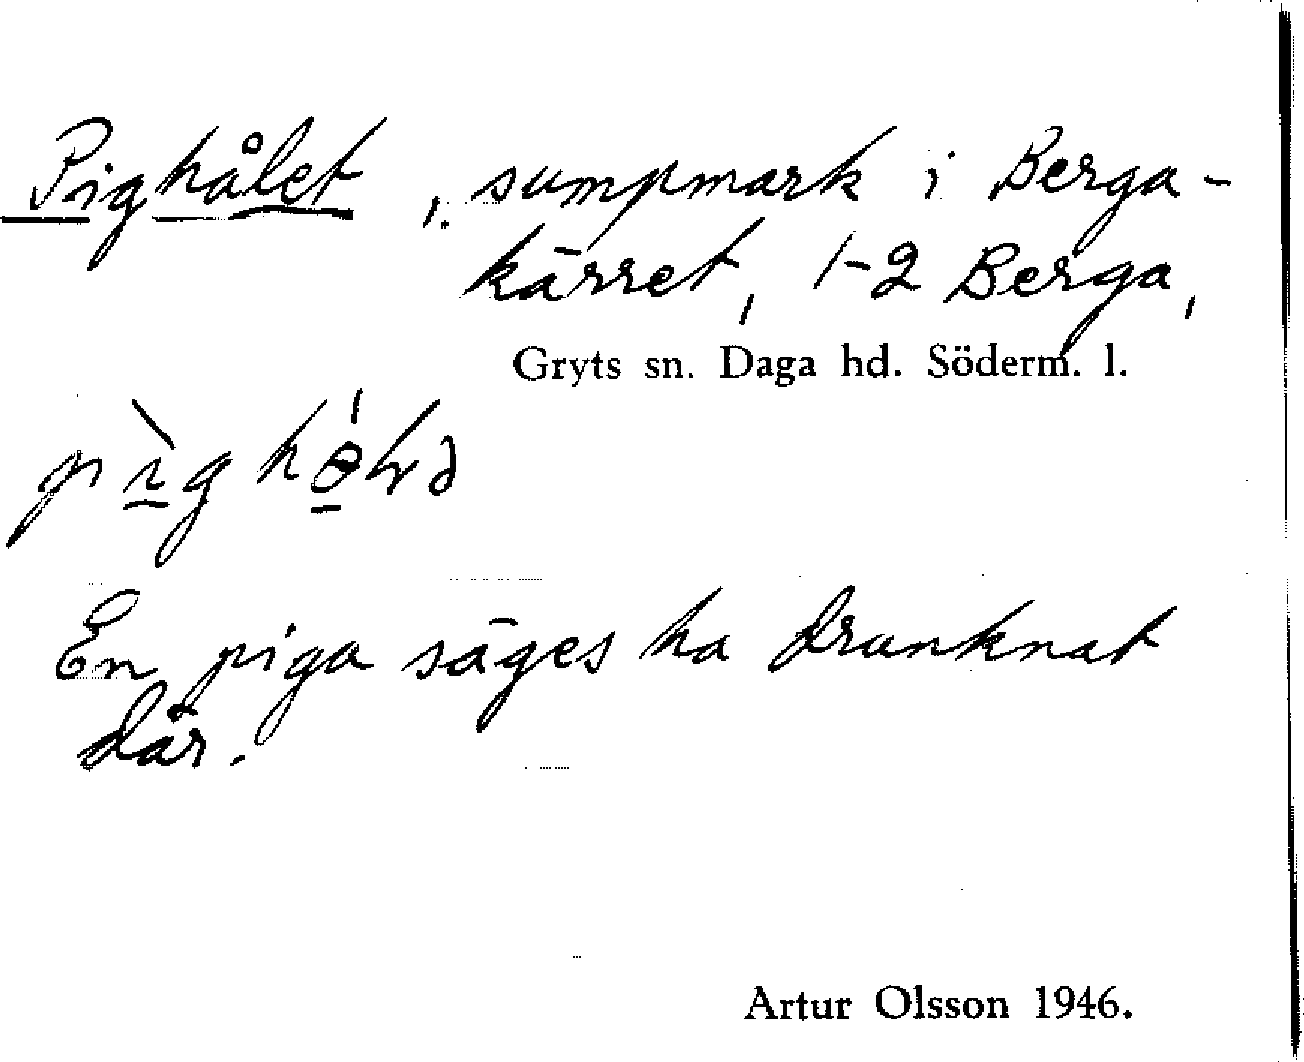 Pighålet, sumpmark i Berga-
kärret, 1-2 Berga,
Gryts sn. Daga hd. Söderm. l.
En piga säges ha drunknat
där.
Artur Olsson 1946.